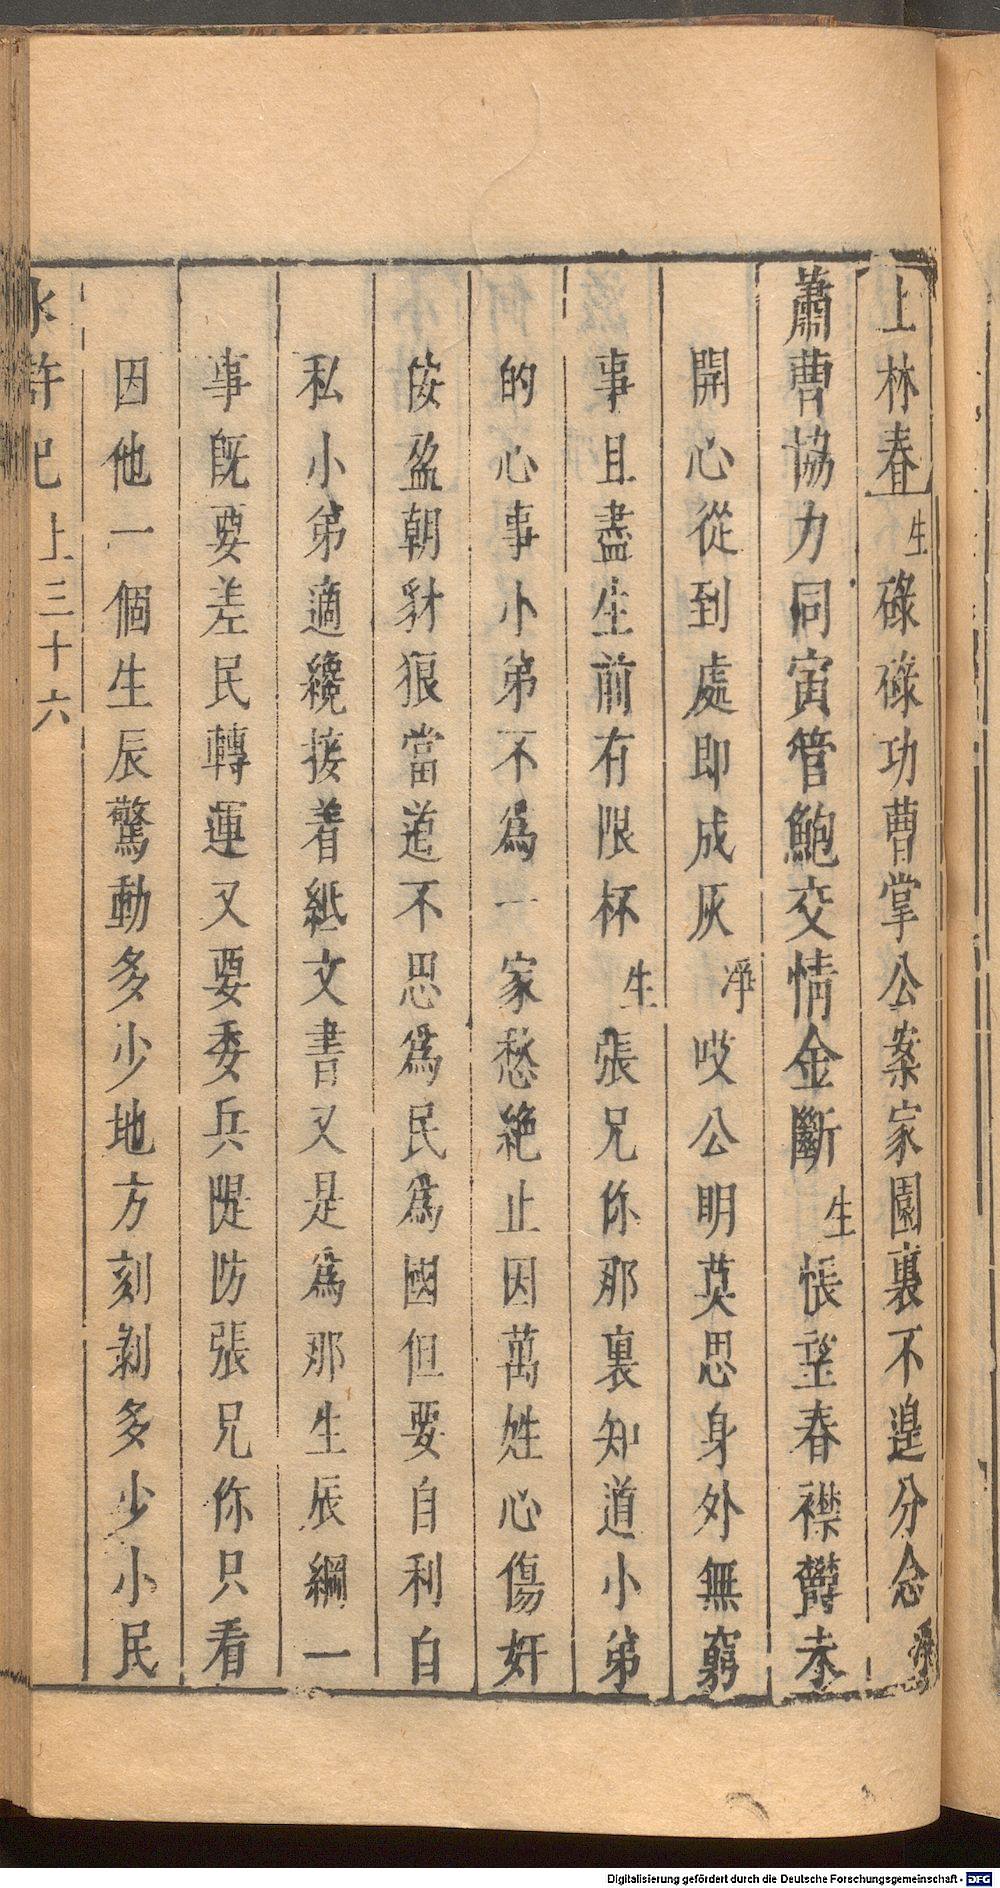 上林春生碌碌功曹掌公案家園裏不遑分念淨
蕭曹協力同寅管鮑交情金斷生悵望春襟欝未
開心從到處即成灰淨哎公明莫思身外無窮
事且盡生前有限杯生張兄你那裏知道小弟
的心事小弟不爲一家愁絶止因萬姓心傷奸
佞盈朝豺狼當道不思爲民爲國但要自利自
私小弟適纔接着紙文書又是爲那生辰綱一
事既要差民轉運又要委兵隄防張兄你只看
因他一個生辰驚動多少地方刻剝多少小民
水滸記 上三十六
Digitalisierung gefördert durch die Deutsche Forschungsgemeinschaft - DFG